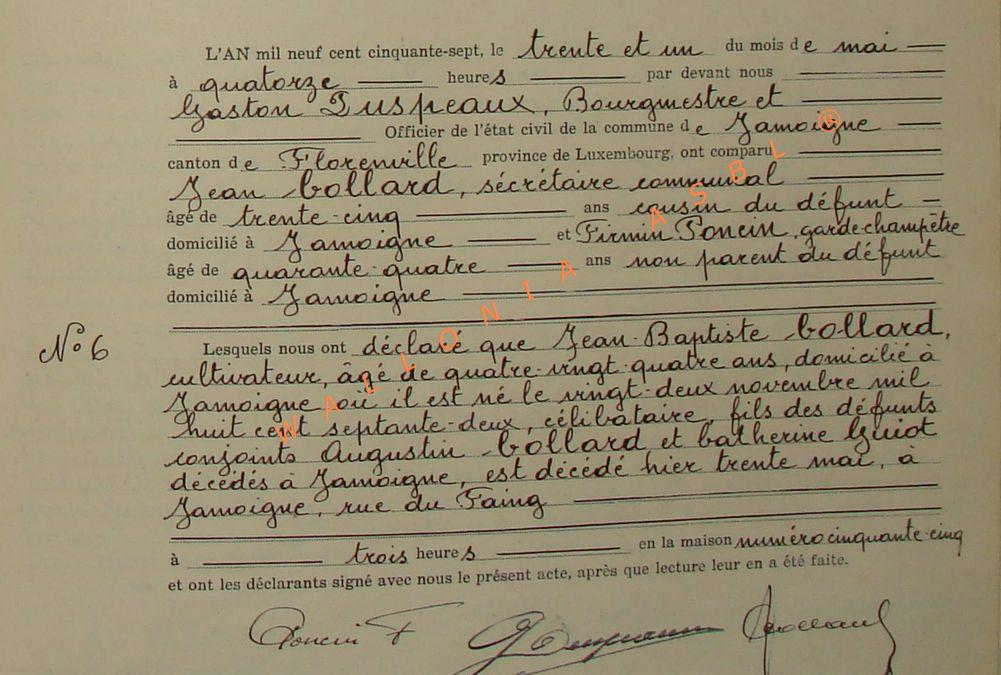 L'AN mil neuf cent cinquante-sept, le trente et un du mois de mai
à quatorze heures par devant nous
Gaston Duspeaux, Bourgmestre et
Officier de l'état civil de la commune de Jamoigne
canton de Florenville province de Luxembourg, ont comparu
Jean Collard, sécrétaire communal
âgé de trente-cinq ans cousin du défunt
domicilié à Jamoigne et Firmin Poncin, garde-champètre
âgé de quarante-quatre ans non parent du défunt
domicilié à Jamoigne
N° 6
Lesquels nous ont déclaré que Jean-Baptiste Collard,
cultivateur, âgé de quatre-vingt-quatre ans, domicilié à
Jamoigne où il est né le vingt-deux novembre mil
huit cent septante-deux, célibataire, fils des défunts
conjoints Augustin Collard et Catherine Guiot
décédés à Jamoigne, est décédé hier trente mai, à
Jamoigne, rue du Faing
à trois heures en la maison numéro cinquante-cinq
et ont les déclarants signé avec nous le présent acte, après que lecture leur en a été faite.
Poncin F
WALLONIA ASBL ®